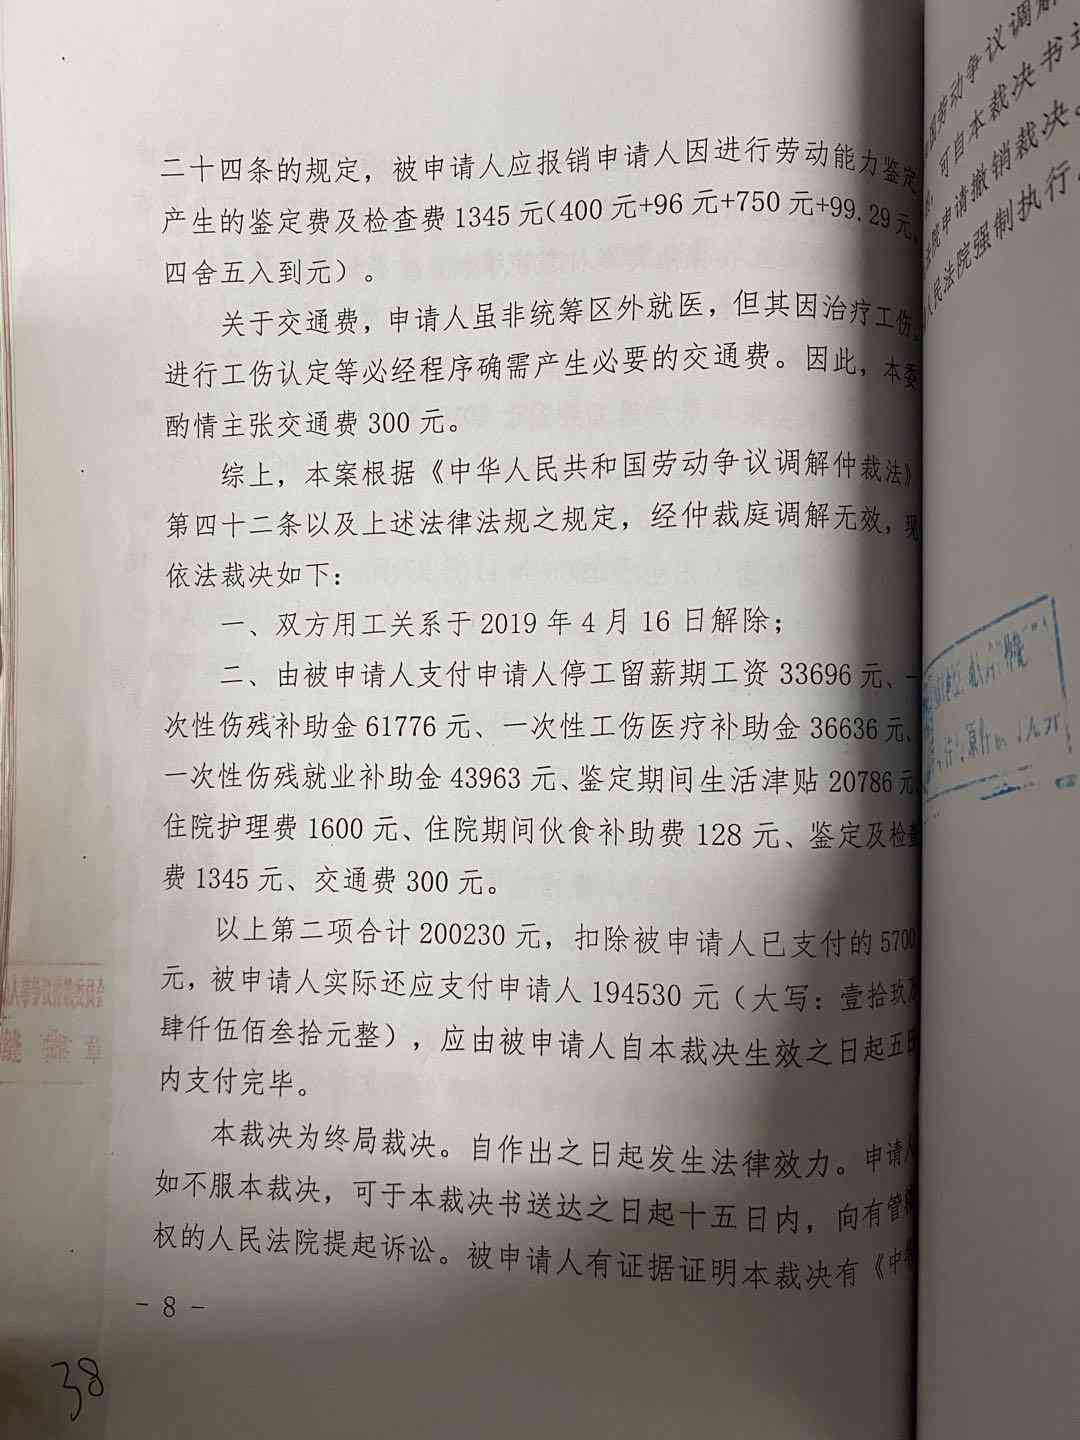 二十四条的规定，被申请人应报销申请人因进行劳动能力鉴定
产生的鉴定费及检查费1345元（400元+96元+750元+99.29元，
四舍五入到元）。
关于交通费，申请人虽非统筹区外就医，但其因治疗工伤、
进行工伤认定等必经程序确需产生必要的交通费。因此，本委
酌情主张交通费300元。
综上，本案根据《中华人民共和国劳动争议调解仲裁法》
第四十二条以及上述法律法规之规定，经仲裁庭调解无效，现
依法裁决如下：
一、双方用工关系于2019年4月16日解除；
二、由被申请人支付申请人停工留薪期工资33696元、一
次性伤残补助金61776元、一次性工伤医疗补助金36636元、
一次性伤残就业补助金43963元、鉴定期间生活津贴20786元、
住院护理费1600元、住院期间伙食补助费128元、鉴定及检查
费1345元、交通费300元。
以上第二项合计200230元，扣除被申请人已支付的5700
元，被申请人实际还应支付申请人194530元（大写：壹拾玖万
肆仟伍佰叁拾元整），应由被申请人自本裁决生效之日起五日
内支付完毕。
本裁决为终局裁决。自作出之日起发生法律效力。申请人
如不服本裁决，可于本裁决书送达之日起十五日内，向有管辖
权的人民法院提起诉讼。被申请人有证据证明本裁决有《中华
- 8 -
38
国劳动争议调解
可自本裁决书送
法院申请撤销裁决。
人民法院强制执行。